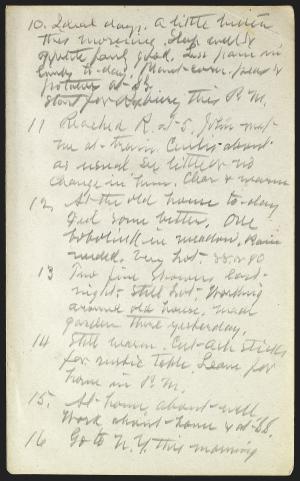 10. Ideal day. A little better
this morning. Slept well &
appetite fairly good. Less pain in
body to-day. Plant corn, peas &
potatoes at SS.
Start for Roxbury this P.M.
11 Reached R. at 5, John met
me at train. Curtis about
as usual see little or no
change in him. Clear & warm
12, At the old house to-day
Feel some better. One
bobolink in meadow. Rain
needed. Very hot - 88 & 90
13 Two fine showers last-
night - Still hot - Working
around old house. Made
garden there yesterday.
14 Still warm. Cut ash sticks
for rustic table. Leave for
home in P.M.
15. At home, about well
Work about home & at SS.
16 Go to N.Y. this morning